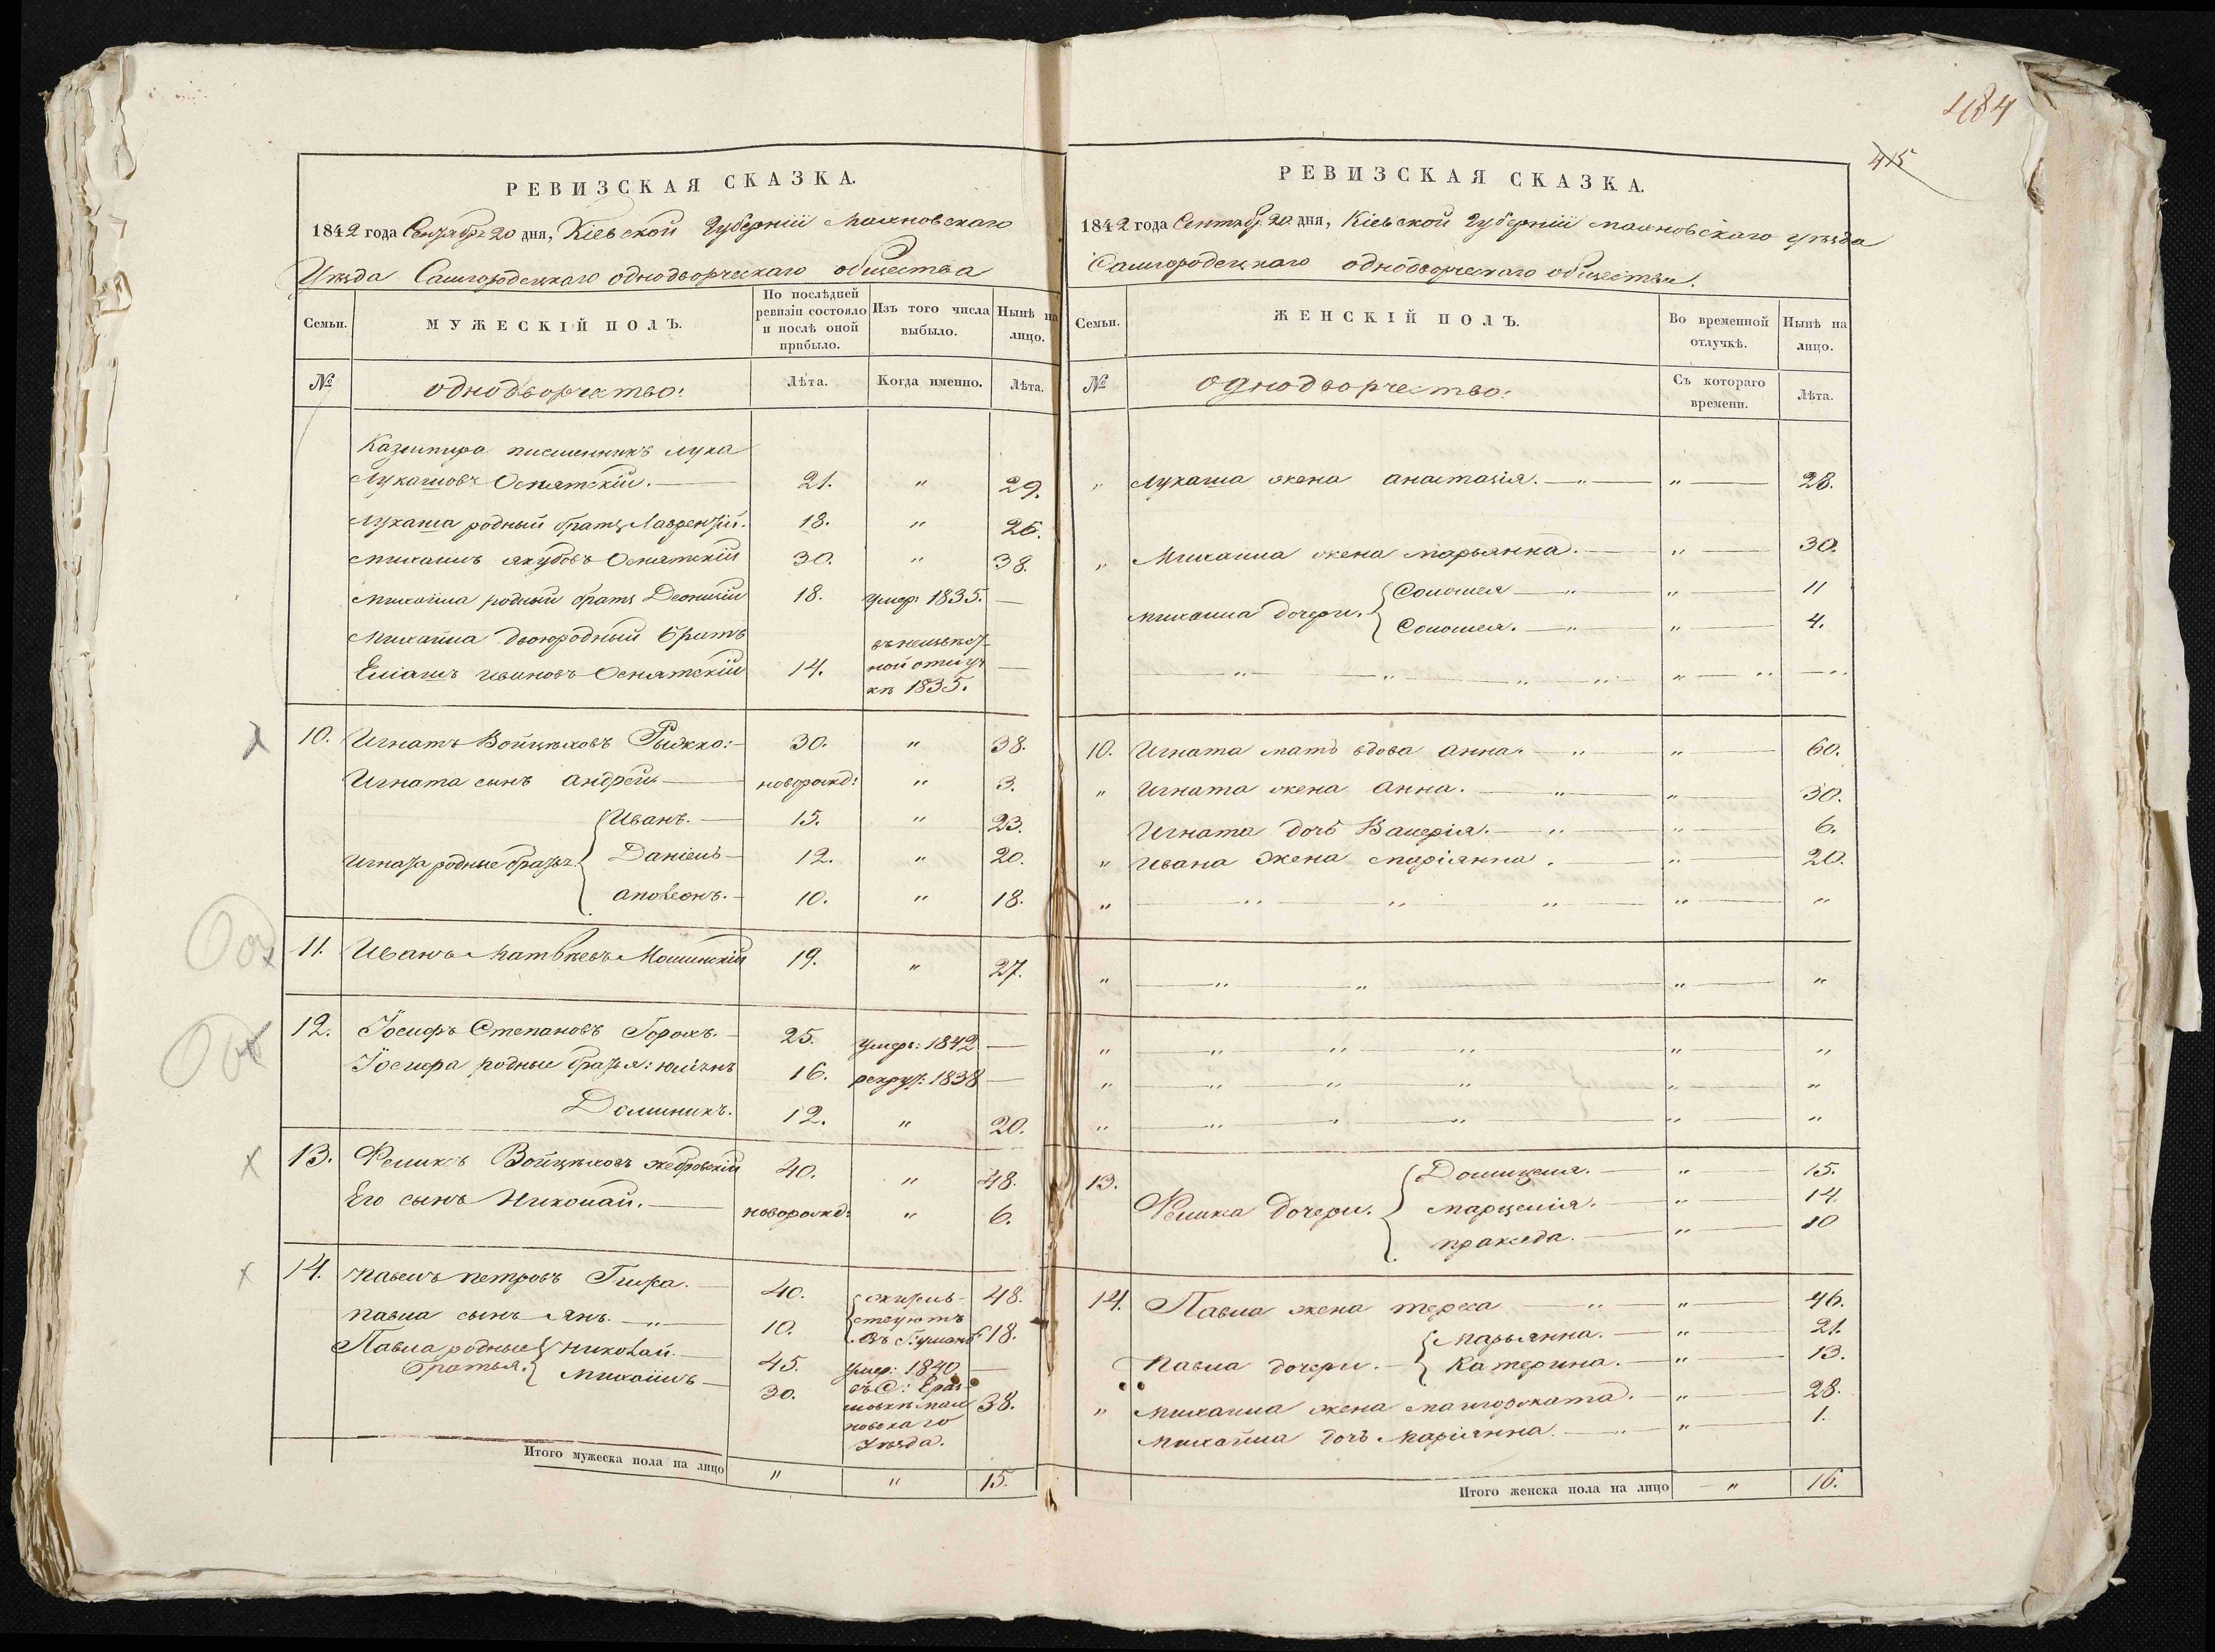 484
415
РЕВИЗСКАЯ СКАЗКА.
1842 года Сентябр: 20 дня, Кіевской Губерніи Махновскаго
Уѣзда Самгородецкаго однодворческаго общества
Семьи.
МУЖЕСКІЙ ПОЛЪ.
По послѣдней ревизіи состояло и послѣ оной прибыло.
Изъ того числа выбыло.
Нынѣ на лицо.
№
однодворчество:
Лѣта.
Когда именно.
Лѣта.
Казимира племянникъ Лука
Лукашовъ Оснятскій. — 21. " 29.
Лукаша родный братъ Лаврентій. 18. " 26.
Михаилъ Якубовъ Оснятскій 30. " 38.
Михаила родный братъ Деонизій 18. умер: 1835. —
Михаила двоюродный братъ
Еліашъ Ивановъ Оснятскій 14. въ неизвѣстной отлучкѣ 1835. —
10. Игнатъ Войцѣховъ Рыжко: — 30. " 38.
Игната сынъ Андрей — новорожд: " 3.
Игната родные братья:
Иванъ. — 15. " 23.
Даніелъ — 12. " 20.
Аполеонъ. — 10. " 18.
11. Иванъ Матвѣевъ Мошинскій 19. " 27.
12. Іосифъ Степановъ Горохъ. — 25. умеръ: 1842 —
Іосифа родные братья: Юліянъ 16. рекрут: 1838 —
Доминикъ. 12. " 20.
13. Феликъ Войцѣховъ Жебровскій 40. " 48.
Его сынъ Николай. — новорожд: " 6.
14. Павелъ Петровъ Гира. — 40. 48.
Павла сынъ Янъ. — " — 10. 18.
жительствуютъ въ Г: Умань
Павла родные братья.
Николай. — 45. умер: 1840. —
Михаилъ — 30. въ С: Махновскаго Уѣзда. 38.
Итого мужеска пола на лицо " " 15.
РЕВИЗСКАЯ СКАЗКА.
1842 года Сентяб: 20 дня, Кіевской Губерніи Махновскаго уѣзда
Самгородецкаго однодворческаго общества.
Семьи.
ЖЕНСКІЙ ПОЛЪ.
Во временной отлучкѣ.
Нынѣ на лицо.
№
однодворчество:
Съ котораго времени.
Лѣта.
" Лукаша жена Анастазія. — " — " — 28.
" Михаила жена Марьянна. — " — 30.
Михаила дочери.
Соломея — " — " — 11
Соломея. — " — " — 4.
10. Игната мать вдова Анна. — " — " — 60.
" Игната жена Анна. — " — " — 30.
Игната дочь Валерія. — " — " — 6.
" Ивана жена Маріянна. — " — 20.
" — " — " — " — " — "
" — " — " — " — "
" — " — " — " — " — "
" — " — " — " — " — "
" — " — " — " — " — "
13. Феликса дочери.
Домицеля. — " — 15.
Марцелія. — " — 14.
Пракседа. — " — 10
14. Павла жена Тереса — " — " — 46.
Павла дочери. —
Марьянна. — " — 21.
Катерина. — " — 13.
" Михаила жена Малгоржата. — " — 28.
Михаила дочь Маріянна. — " — " 1.
Итого женска пола на лицо — " 16.